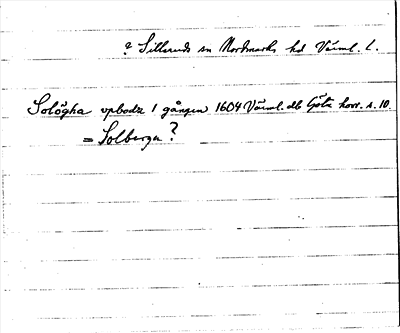 ? Silleruds sn Nordmarks hd Värml. l.
Solögha vpbodz 1 gången 1604 Värml. db Göta hovr. s. 10.
= Solbergn?